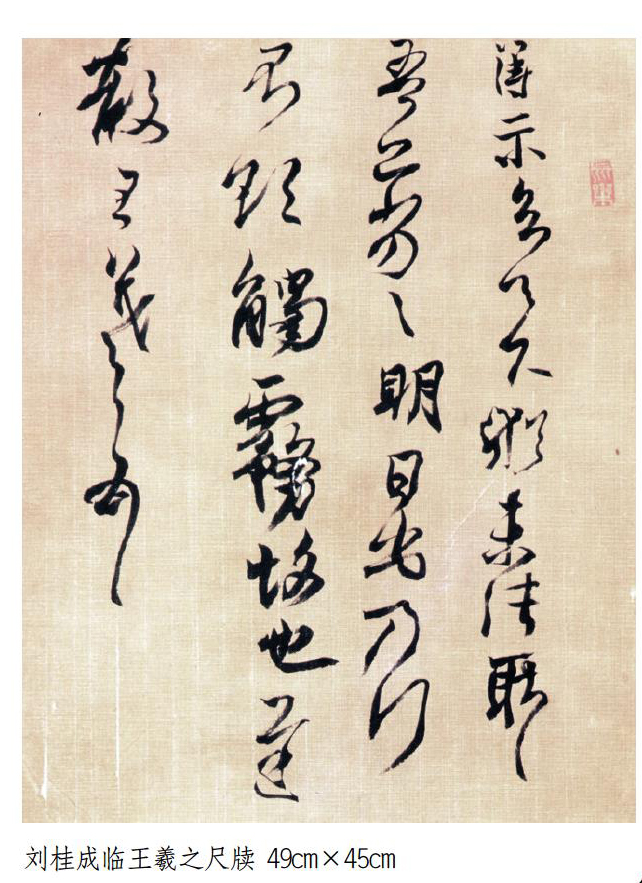 得示知足下猶未佳耿々
吾亦劣々明日出乃行
不欲觸霧故也遲
散王羲之頓首
刘桂成临王羲之尺牍 49cm×45cm